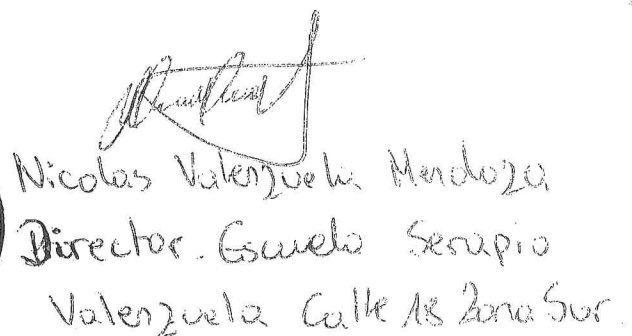 Nicolas Valenzuela Mendoza
Director. Escuela Serapio
Valenzuela Calle 18 Zona Sur.